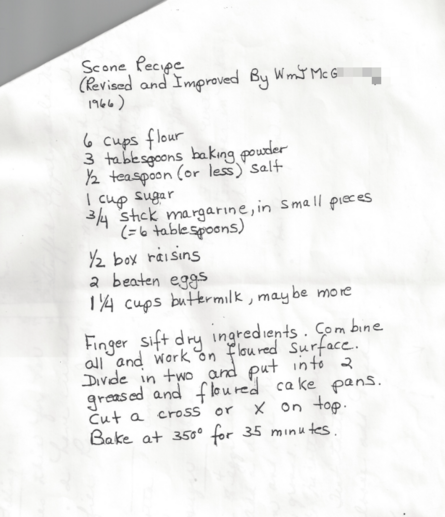 Scone Recipe
(Revised and Improved By WmJ McG
1966)
6 cups flour
3 tablespoons baking powder
½ teaspoon (or less) salt
1 cup sugar
3/4 stick margarine, in small pieces
(=6 tablespoons)
½ box raisins
2 beaten eggs
1¼ cups buttermilk, maybe more
Finger sift dry ingredients. Combine
all and work on floured surface.
Divide in two and put into 2
greased and floured cake pans.
Cut a cross or X on top.
Bake at 350° for 35 minutes.